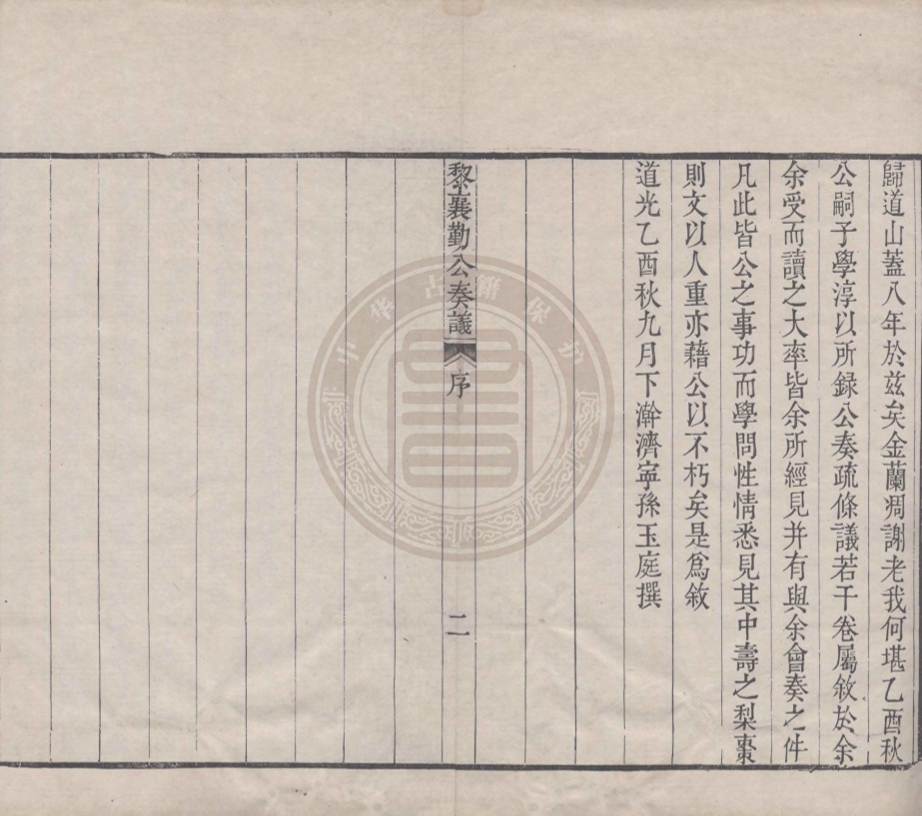 歸道山蓋八年於兹矣金蘭凋謝老我何堪乙酉秋
公嗣子學淳以所録公奏疏條議若干卷屬敘於余
余受而讀之大率皆余所經見并有與余會奏之件
凡此皆公之事功而學問性情悉見其中壽之梨棗
則文以人重亦藉公以不朽矣是爲敘
道光乙酉秋九月下澣濟寧孫玉庭撰
黎襄勤公奏議 序 二
中华古籍保护